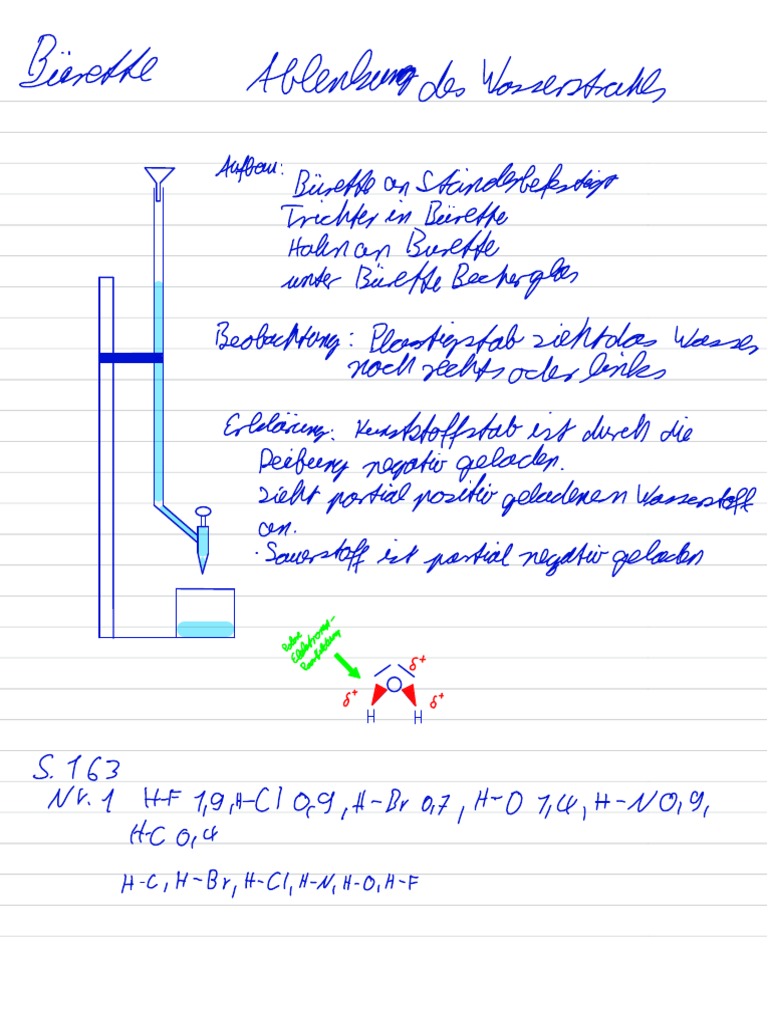 Bürette Ablenkung des Wasserstrahls
Aufbau: Bürette an Ständer befestigt
Trichter in Bürette
Hahn an Burette
unter Bürette Becherglas
Beobachtung: Plastigstab zieht das Wasser
nach rechts oder links
Erklärung: Kunststoffstab ist durch die
Reibung negativ geladen.
zieht partial positiv geladenen Wasserstoff
an.
· Sauerstoff ist partial negativ geladen
Elektronen-
δ+
O
δ+ δ+
H H
S. 163
Nr. 1 H-F 1,9, H-Cl 0,9, H-Br 0,7, H-O 1,4, H-N 0,9,
H-C 0,4
H-C, H-Br, H-Cl, H-N, H-O, H-F